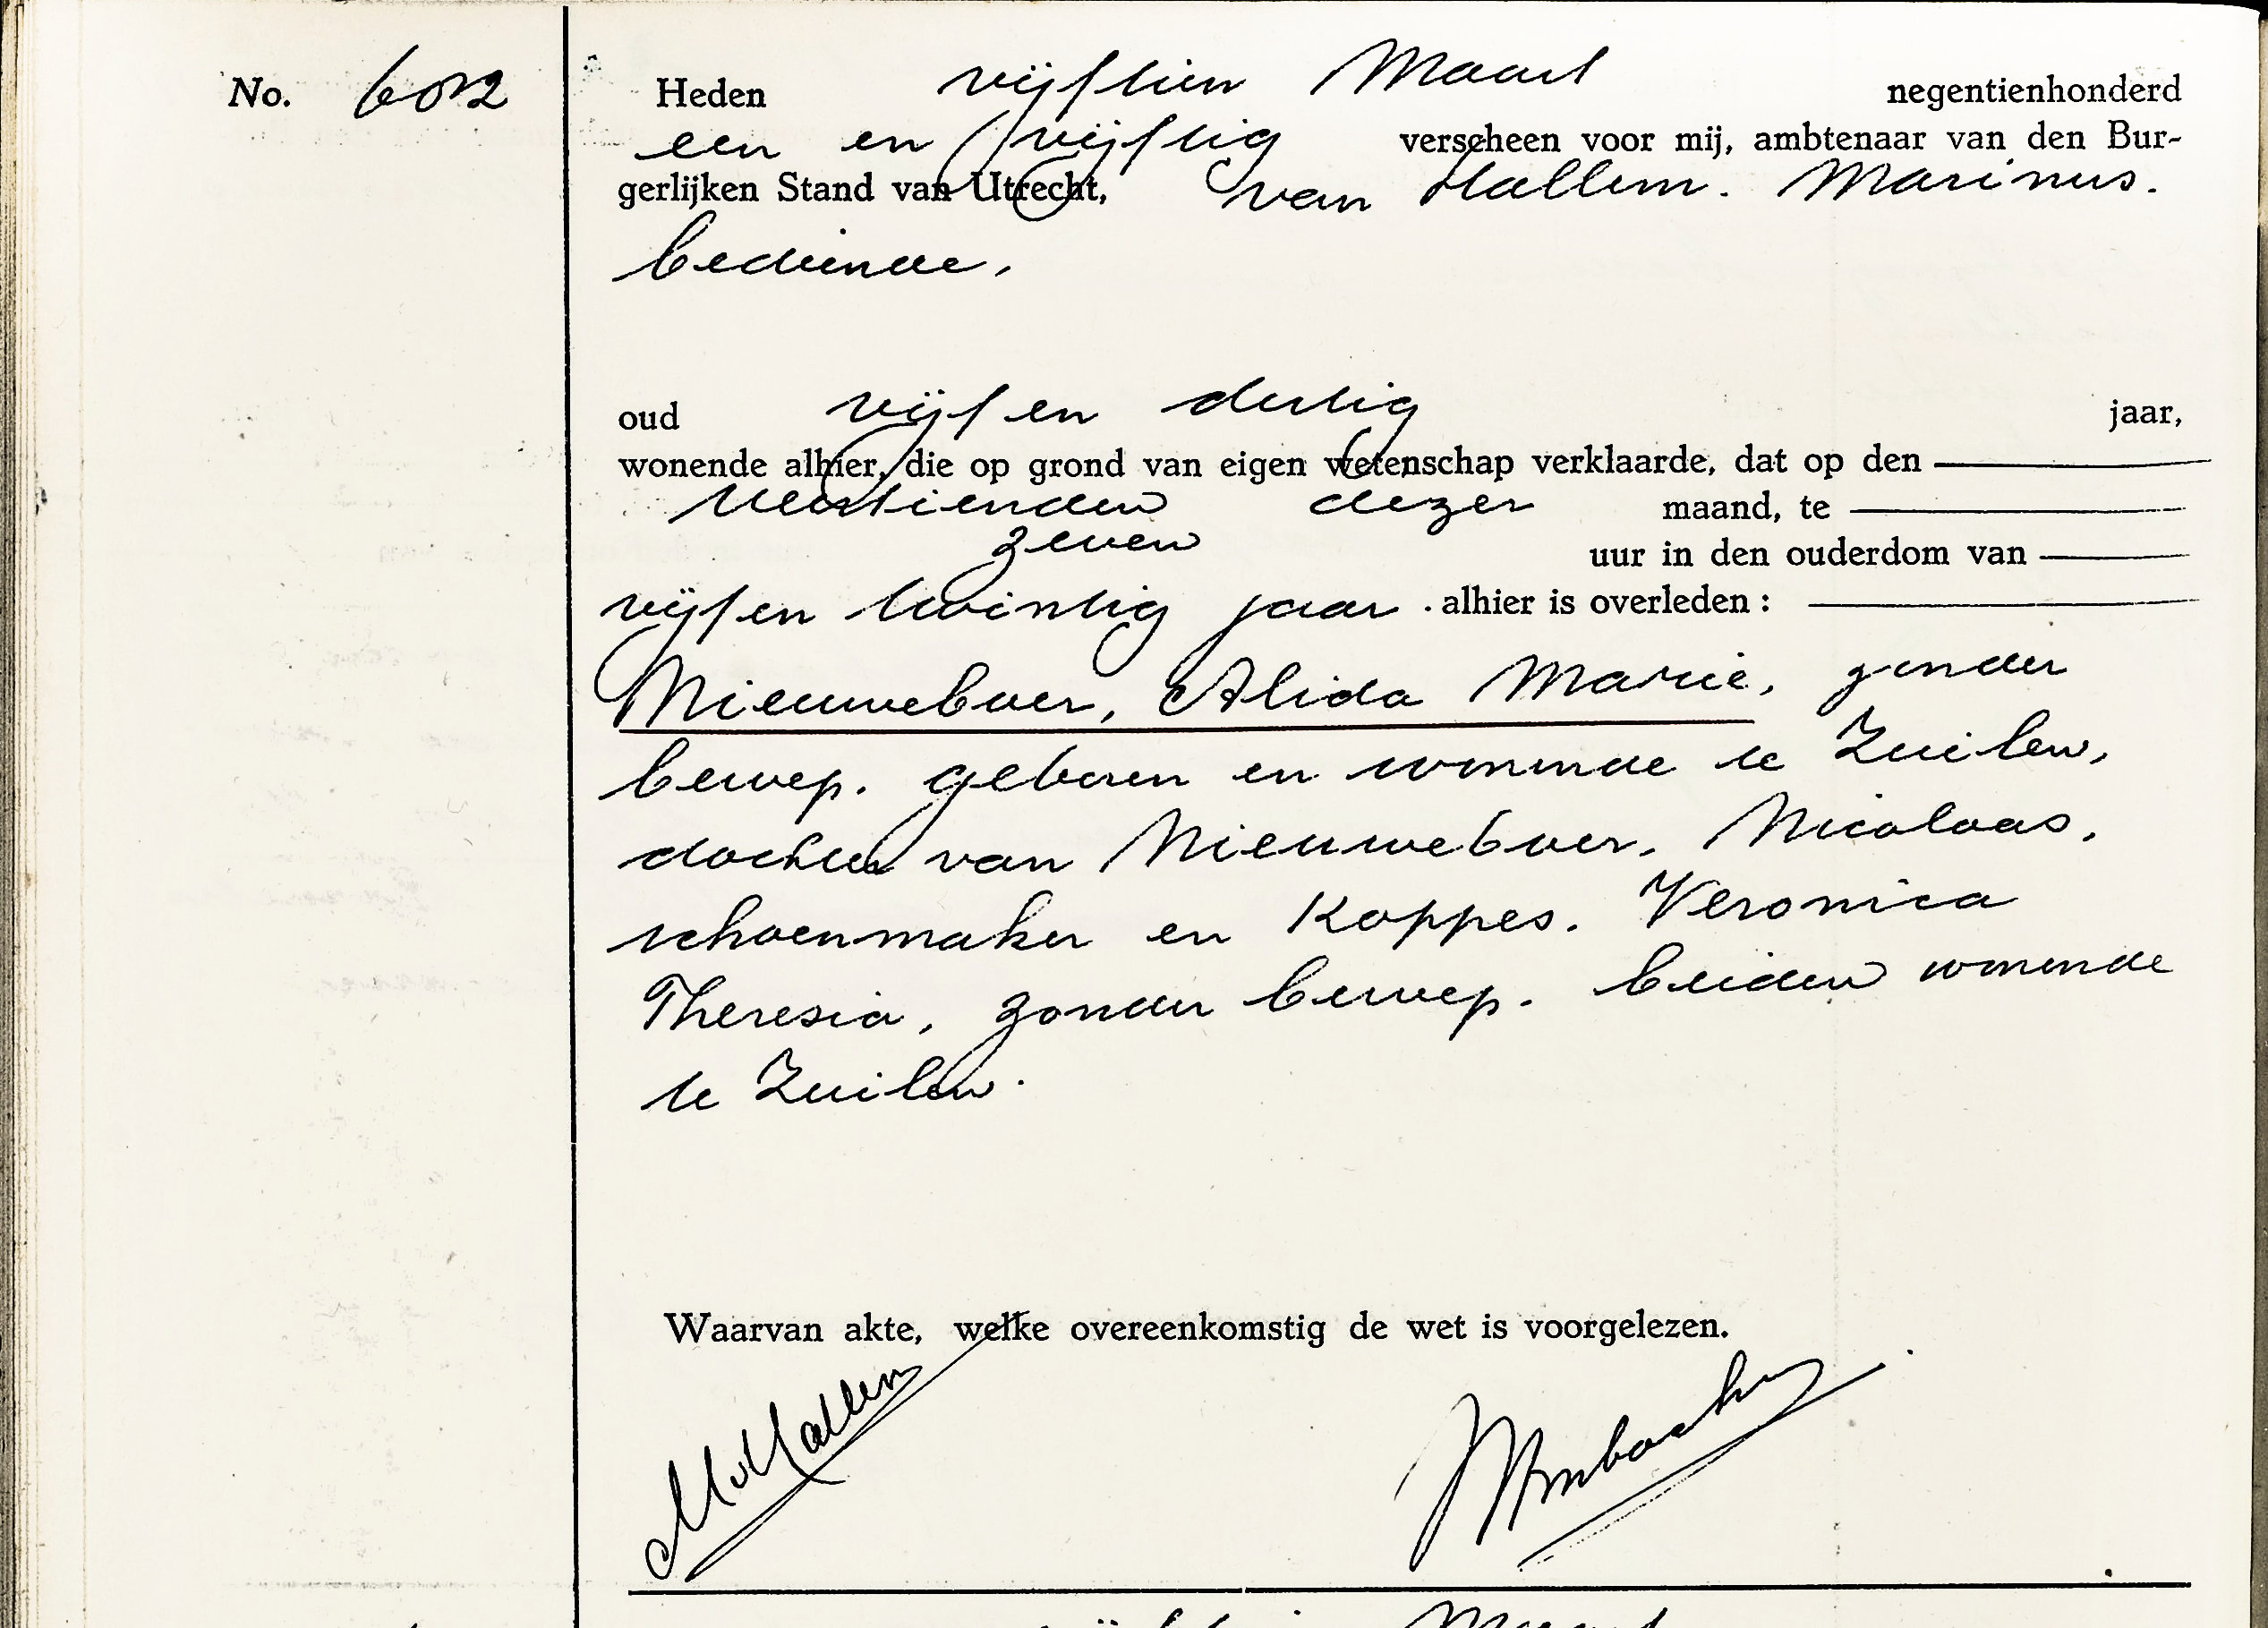 No. 602
Heden vijftien Maart negentienhonderd
een en vijftig verscheen voor mij, ambtenaar van den Bur-
gerlijken Stand van Utrecht, van Hallem. Marinus.
bediende,
oud vijf en dertig jaar,
wonende alhier, die op grond van eigen wetenschap verklaarde, dat op den
veertienden dezer maand, te
zeven uur in den ouderdom van
vijf en twintig jaar. alhier is overleden:
Nieuweboer, Alida Marie, zonder
beroep. geboren en wonende te Zuilen,
dochter van Nieuweboer. Nicolaas,
schoenmaker en Koppes. Veronica
Theresia, zonder beroep. beiden wonende
te Zuilen.
Waarvan akte, welke overeenkomstig de wet is voorgelezen.
MvHallem